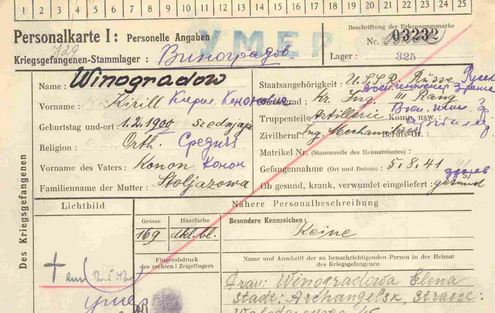 1 2 3 4 5 6 7 8 9 10 11 12 13 14 15 16 17 18 19 20 21 22 23 24 25
Personalkarte I: Personelle Angaben
УМЕР
Beschriftung der Erkennungsmarke
Nr. 03232
Kriegsgefangenen-Stammlager: Виноградов
Lager: 325
Des Kriegsgefangenen
Name: Winogradow
Staatsangehörigkeit: U.S.S.R. Russe
Vorname: Kirill Кирил
Dienstgrad: Kr. Ing. III Rang
Truppenteil: Artillerie Komp. usw.:
Geburtstag und -ort: 1.2.1900
Zivilberuf: Ing.
Religion: Orth.
Matrikel Nr. (Stammrolle des Heimatstaates):
Vorname des Vaters: Konon Конон
Gefangennahme (Ort und Datum): 5.8.41
Familienname der Mutter: Stoljazowa
Ob gesund, krank, verwundet eingeliefert: gesund
Lichtbild
Nähere Personalbeschreibung
Grösse
Haarfarbe
Besondere Kennzeichen:
169
dkl.bl.
Keine
Fingerabdruck
des rechten! Zeigefingers
Name und Anschrift der zu benachrichtigenden Person in der Heimat
des Kriegsgefangenen
+ am 2.5.42
умер
Frau: Winogradowa Elena
Stadt: Archangelsk, Strasse: